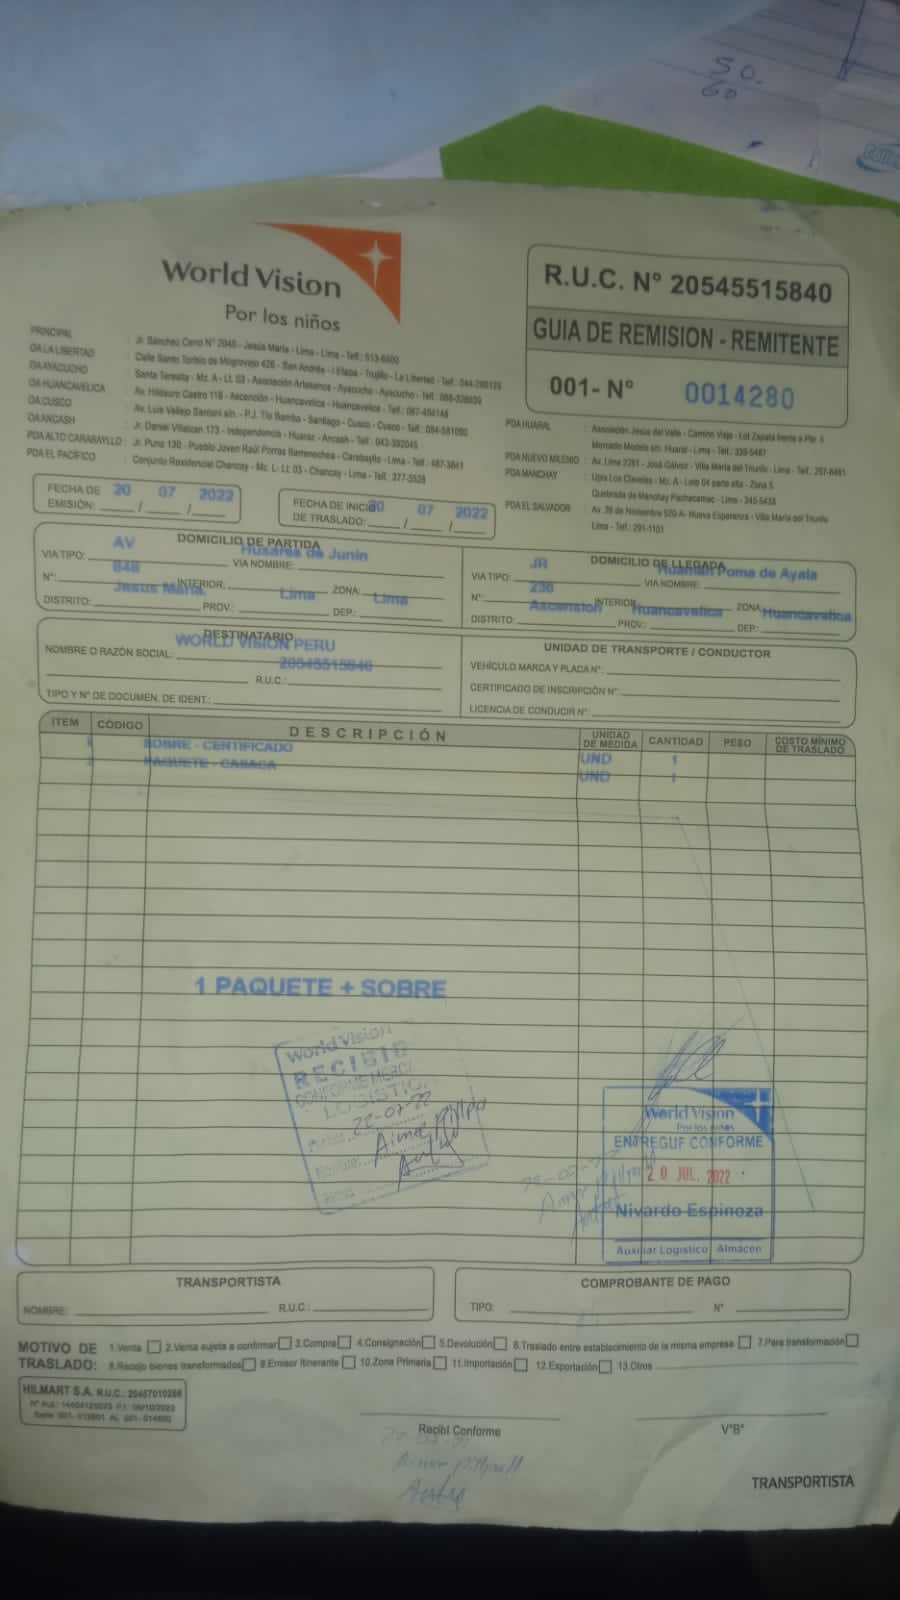 50.
60
World Vision
Por los niños
R.U.C. Nº 20545515840
GUIA DE REMISION - REMITENTE
001- Nº 0014280
PRINCIPAL : Jr. Sánchez Cerro Nº 2048 - Jesús María - Lima - Lima - Telf.: 513-6600
OA LA LIBERTAD : Calle Santo Toribio de Mogrovejo 426 - San Andrés - I Etapa - Trujillo - La Libertad - Telf.:
OA AYACUCHO : Santa Teresita - Mz. A - Lt. 03 - Asociación Artesanos - Ayacucho - Ayacucho - Telf.:
OA HUANCAVELICA : Av. Hildauro Castro 118 - Ascención - Huancavelica - Huancavelica - Telf.:
OA CUSCO : Av. Luis Vallejo Santoni s/n. - P.J. Tío Bamba - Santiago - Cusco - Cusco - Telf.:
OA ANCASH : Jr. Daniel Villaizan 173 - Independencia - Huaraz - Ancash - Telf.:
PDA ALTO CARABAYLLO : Jr. Puno 130 - Pueblo Joven Raúl Porras Barrenechea - Carabayllo - Lima - Telf.:
PDA EL PACÍFICO : Conjunto Residencial Chancay - Mz. L- Lt. 03 - Chancay - Lima - Telf.: 377-5528
PDA HUARAL : Asociación Jesús del Valle - Camino Viejo - Lot Zapata frente a
Mercado Modelo s/n. Huaral - Lima - Telf.:
PDA NUEVO MILENIO : Av. Lima 2281 - José Gálvez - Villa María del Triunfo - Lima - Telf.:
PDA MANCHAY : Upis Los Claveles - Mz. A - Lote 04 parte alta - Zona 5
Quebrada de Manchay Pachacamac - Lima - 345-5438
PDA EL SALVADOR : Av. 26 de Noviembre 520 A- Nueva Esperanza - Villa María del Triunfo
Lima - Telf.: 291-1101
FECHA DE EMISIÓN: 20 / 07 / 2022
FECHA DE INICIO DE TRASLADO: 20 / 07 / 2022
DOMICILIO DE PARTIDA
VIA TIPO: AV VIA NOMBRE: Husares de Junin
Nº: 848 INTERIOR: ZONA:
DISTRITO: Jesus Maria PROV.: Lima DEP.: Lima
DOMICILIO DE LLEGADA
VIA TIPO: JR VIA NOMBRE: Huaman Poma de Ayala
Nº: 236 INTERIOR ZONA:
DISTRITO: Ascension PROV.: Huancavelica DEP.: Huancavelica
DESTINATARIO
NOMBRE O RAZÓN SOCIAL: WORLD VISION PERU
R.U.C.:
TIPO Y Nº DE DOCUMEN. DE IDENT.:
UNIDAD DE TRANSPORTE / CONDUCTOR
VEHÍCULO MARCA Y PLACA Nº:
CERTIFICADO DE INSCRIPCIÓN Nº:
LICENCIA DE CONDUCIR Nº:
ITEM CÓDIGO DESCRIPCIÓN UNIDAD DE MEDIDA CANTIDAD PESO COSTO MÍNIMO DE TRASLADO
1 SOBRE - CERTIFICADO UND 1
2 PAQUETE - CASACA UND 1
1 PAQUETE + SOBRE
World Vision
RECIBIO
CONFORME
LOGISTIC
22-07-22
World Vision
Por los niños
ENTREGUE CONFORME
20 JUL. 2022
Nivardo Espinoza
Auxiliar Logistico Almacén
TRANSPORTISTA
NOMBRE: R.U.C.:
COMPROBANTE DE PAGO
TIPO: Nº
MOTIVO DE TRASLADO:
1.Venta 2.Venta sujeta a confirmar 3.Compra 4.Consignación 5.Devolución 6.Traslado entre establecimiento de la misma empresa 7.Para transformación
8.Recojo bienes transformados 9.Emisor Itinerante 10.Zona Primaria 11.Importación 12.Exportación 13.Otros
HILMART S.A. R.U.C.:
Recibí Conforme
VºBº
TRANSPORTISTA